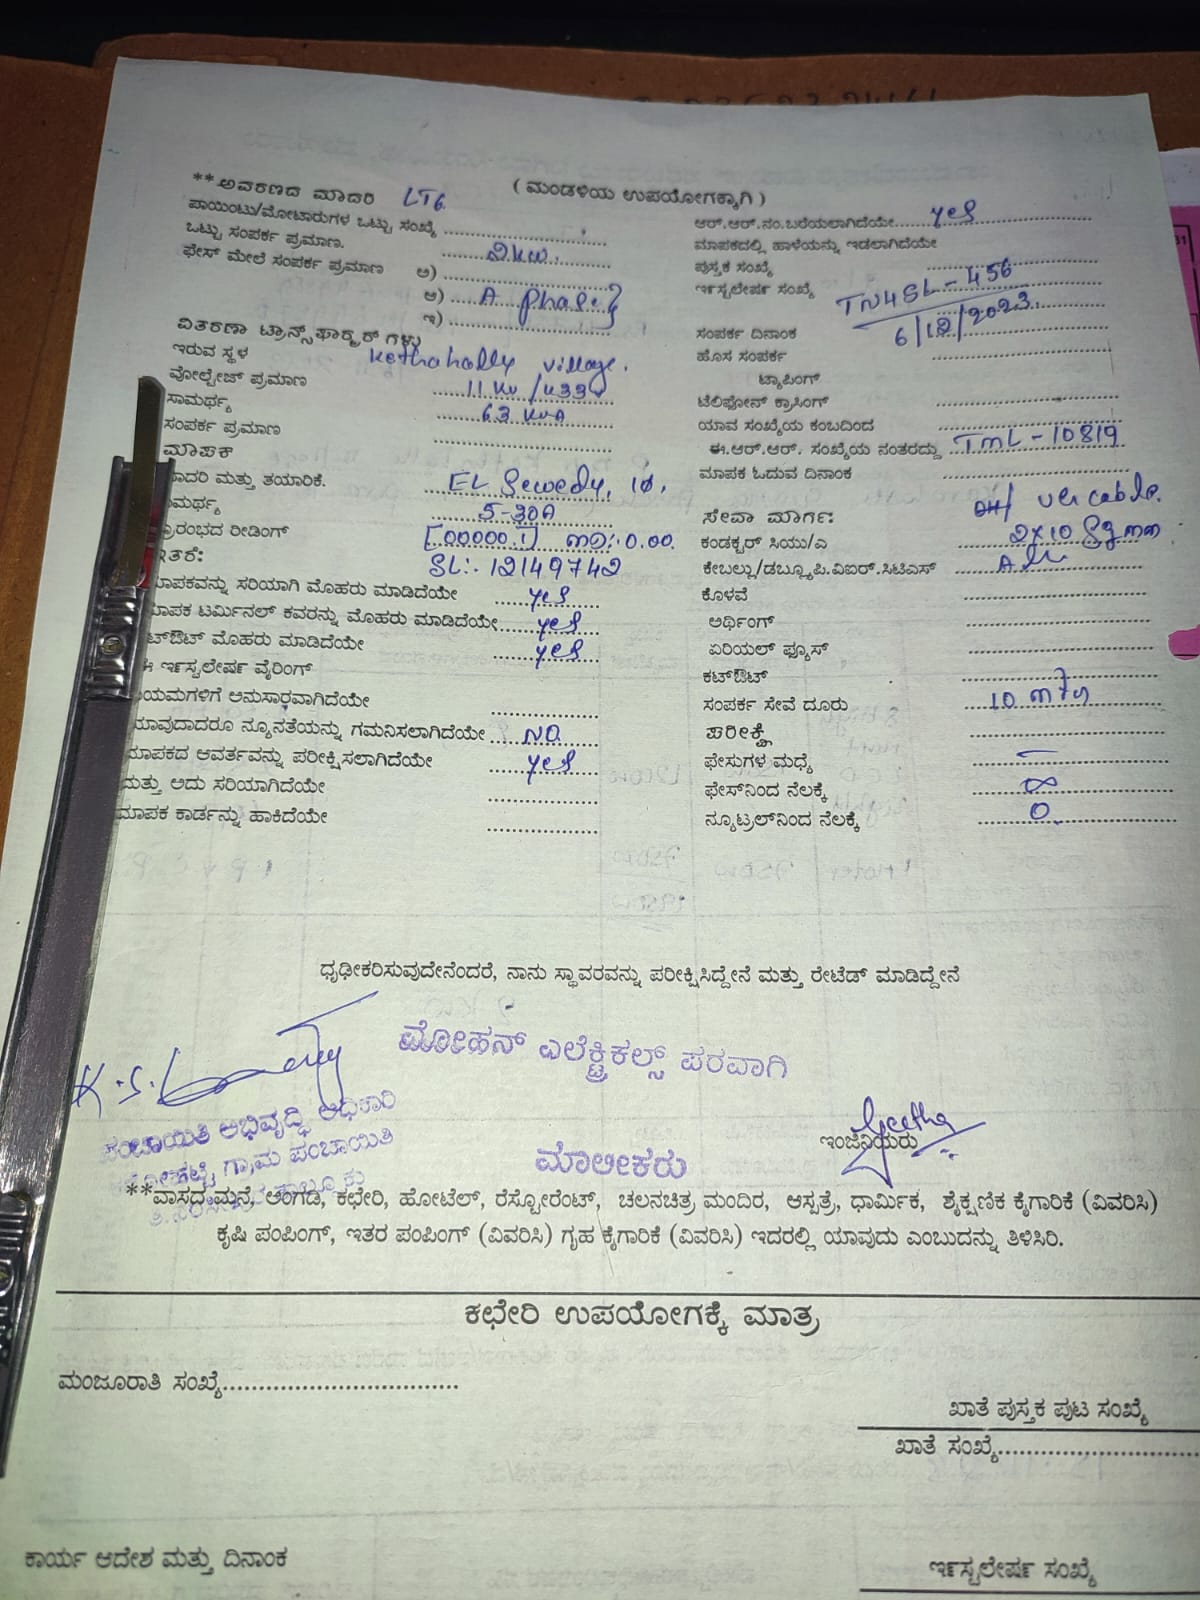 (ಮಂಡಳಿಯ ಉಪಯೋಗಕ್ಕಾಗಿ)
**ಅವರಣದ ಮಾದರಿ LT6
ಪಾಯಿಂಟು/ಮೋಟಾರುಗಳ ಒಟ್ಟು ಸಂಖ್ಯೆ
ಒಟ್ಟು ಸಂಪರ್ಕ ಪ್ರಮಾಣ. 2KW.
ಫೇಸ್ ಮೇಲೆ ಸಂಪರ್ಕ ಪ್ರಮಾಣ ಅ)
ಆ) A phase }
ಇ)
ವಿತರಣಾ ಟ್ರಾನ್ಸ್‌ಫಾರ್‍ಮರ್ ಗಳು
ಇರುವ ಸ್ಥಳ Kethahally village.
ವೋಲ್ಟೇಜ್ ಪ್ರಮಾಣ 11 KV /433V
ಸಾಮರ್ಥ್ಯ 63 KVA
ಸಂಪರ್ಕ ಪ್ರಮಾಣ
ಮಾಪಕ
ಮಾದರಿ ಮತ್ತು ತಯಾರಿಕೆ. EL Sewedy, 1Φ,
ಸಾಮರ್ಥ್ಯ 5-30A
ಪ್ರಾರಂಭದ ರೀಡಿಂಗ್ [00000.1] MD:. 0.00.
ಇತರೆ: SL:. 12149742
ಮಾಪಕವನ್ನು ಸರಿಯಾಗಿ ಮೊಹರು ಮಾಡಿದೆಯೇ yes
ಮಾಪಕ ಟರ್ಮಿನಲ್ ಕವರನ್ನು ಮೊಹರು ಮಾಡಿದೆಯೇ yes
ಕಟ್‌ಔಟ್ ಮೊಹರು ಮಾಡಿದೆಯೇ yes
ಈ ಇನ್‌ಸ್ಟಲೇಷನ್ ವೈರಿಂಗ್
ನಿಯಮಗಳಿಗೆ ಅನುಸಾರವಾಗಿದೆಯೇ
ಯಾವುದಾದರೂ ನ್ಯೂನತೆಯನ್ನು ಗಮನಿಸಲಾಗಿದೆಯೇ NO
ಮಾಪಕದ ಆವರ್ತವನ್ನು ಪರೀಕ್ಷಿಸಲಾಗಿದೆಯೇ yes
ಮತ್ತು ಅದು ಸರಿಯಾಗಿದೆಯೇ
ಮಾಪಕ ಕಾರ್ಡನ್ನು ಹಾಕಿದೆಯೇ
ಆರ್.ಆರ್.ನಂ.ಬರೆಯಲಾಗಿದೆಯೇ yes
ಮಾಪಕದಲ್ಲಿ ಹಾಳೆಯನ್ನು ಇಡಲಾಗಿದೆಯೇ
ಪುಸ್ತಕ ಸಂಖ್ಯೆ
ಇನ್‌ಸ್ಟಲೇಷನ್ ಸಂಖ್ಯೆ TN4SL-456
ಸಂಪರ್ಕ ದಿನಾಂಕ 6/12/2023
ಹೊಸ ಸಂಪರ್ಕ
ಟ್ಯಾಪಿಂಗ್
ಟೆಲಿಫೋನ್ ಕ್ರಾಸಿಂಗ್
ಯಾವ ಸಂಖ್ಯೆಯ ಕಂಬದಿಂದ
ಈ.ಆರ್.ಆರ್. ಸಂಖ್ಯೆಯ ನಂತರದ್ದು TML-10819
ಮಾಪಕ ಓದುವ ದಿನಾಂಕ
ಸೇವಾ ಮಾರ್ಗ: OH/ cable.
ಕಂಡಕ್ಟರ್ ಸಿಯು/ಎ 2x10 Sqmm
ಕೇಬಲ್ಲು/ಡಬ್ಲ್ಯೂಪಿ.ವಿಐರ್.ಸಿಟಿಎಸ್
ಕೊಳವೆ
ಅರ್ಥಿಂಗ್
ಏರಿಯಲ್ ಫ್ಯೂಸ್
ಕಟ್‌ಔಟ್
ಸಂಪರ್ಕ ಸೇವೆ ದೂರು 10 mts
ಪರೀಕ್ಷೆ
ಫೇಸುಗಳ ಮಧ್ಯೆ –
ಫೇಸ್‌ನಿಂದ ನೆಲಕ್ಕೆ ∞
ನ್ಯೂಟ್ರಲ್‌ನಿಂದ ನೆಲಕ್ಕೆ 0.
ಧೃಢೀಕರಿಸುವುದೇನೆಂದರೆ, ನಾನು ಸ್ಥಾವರವನ್ನು ಪರೀಕ್ಷಿಸಿದ್ದೇನೆ ಮತ್ತು ರೇಟೆಡ್ ಮಾಡಿದ್ದೇನೆ
ಮೋಹನ್ ಎಲೆಕ್ಟ್ರಿಕಲ್ಸ್ ಪರವಾಗಿ
ಪಂಚಾಯಿತಿ ಅಭಿವೃದ್ಧಿ ಅಧಿಕಾರಿ
ಗ್ರಾಮ ಪಂಚಾಯಿತಿ
Geetha
ಇಂಜಿನಿಯರು
ಮಾಲೀಕರು
**ವಾಸದ ಮನೆ, ಅಂಗಡಿ, ಕಛೇರಿ, ಹೋಟೆಲ್, ರೆಸ್ಟೋರೆಂಟ್, ಚಲನಚಿತ್ರ ಮಂದಿರ, ಆಸ್ಪತ್ರೆ, ಧಾರ್ಮಿಕ, ಶೈಕ್ಷಣಿಕ ಕೈಗಾರಿಕೆ (ವಿವರಿಸಿ)
ಕೃಷಿ ಪಂಪಿಂಗ್, ಇತರ ಪಂಪಿಂಗ್ (ವಿವರಿಸಿ) ಗೃಹ ಕೈಗಾರಿಕೆ (ವಿವರಿಸಿ) ಇದರಲ್ಲಿ ಯಾವುದು ಎಂಬುದನ್ನು ತಿಳಿಸಿರಿ.
ಕಛೇರಿ ಉಪಯೋಗಕ್ಕೆ ಮಾತ್ರ
ಮಂಜೂರಾತಿ ಸಂಖ್ಯೆ
ಖಾತೆ ಪುಸ್ತಕ ಪುಟ ಸಂಖ್ಯೆ
ಖಾತೆ ಸಂಖ್ಯೆ
ಕಾರ್ಯ ಆದೇಶ ಮತ್ತು ದಿನಾಂಕ
ಇನ್‌ಸ್ಟಲೇಷನ್ ಸಂಖ್ಯೆ